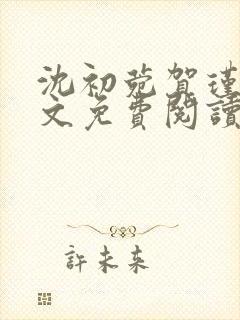 沈初菀賀瑾
文免費閱讀
許未來